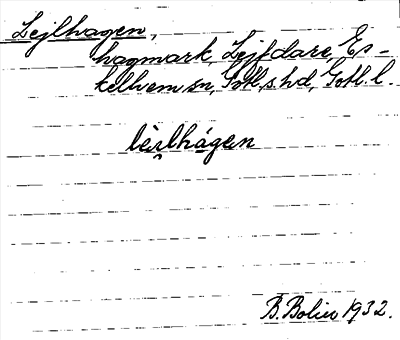 Lejlhagen,
hagmark, Lejfdare, Es-
kelhem sn, Gotl.s.hd, Gotl. l.
lèi̯lhágen
B. Bolin 1932.